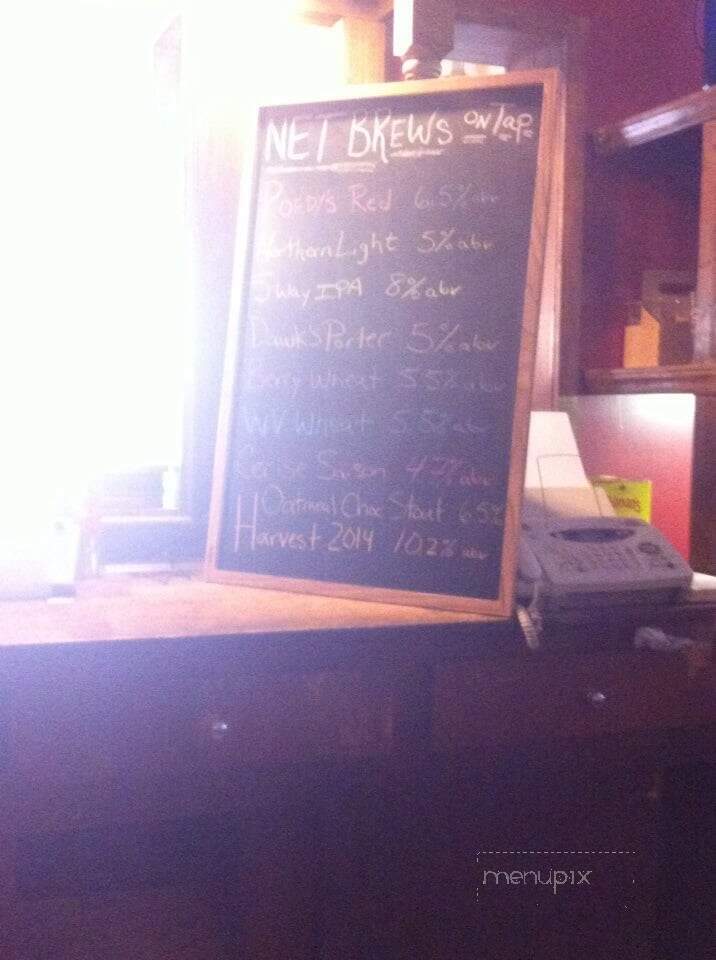 NET BREWS ON Tap
Red 6.5% abv
Northern Light 5% abv
5 Way IPA 8% abv
Porter 5% abv
Berry Wheat 5.5% abv
WV Wheat 5.5% abv
Cerise Saison 4.7% abv
Oatmeal Choc Stout 6.5%
Harvest 2014 10.2% abv
menupix